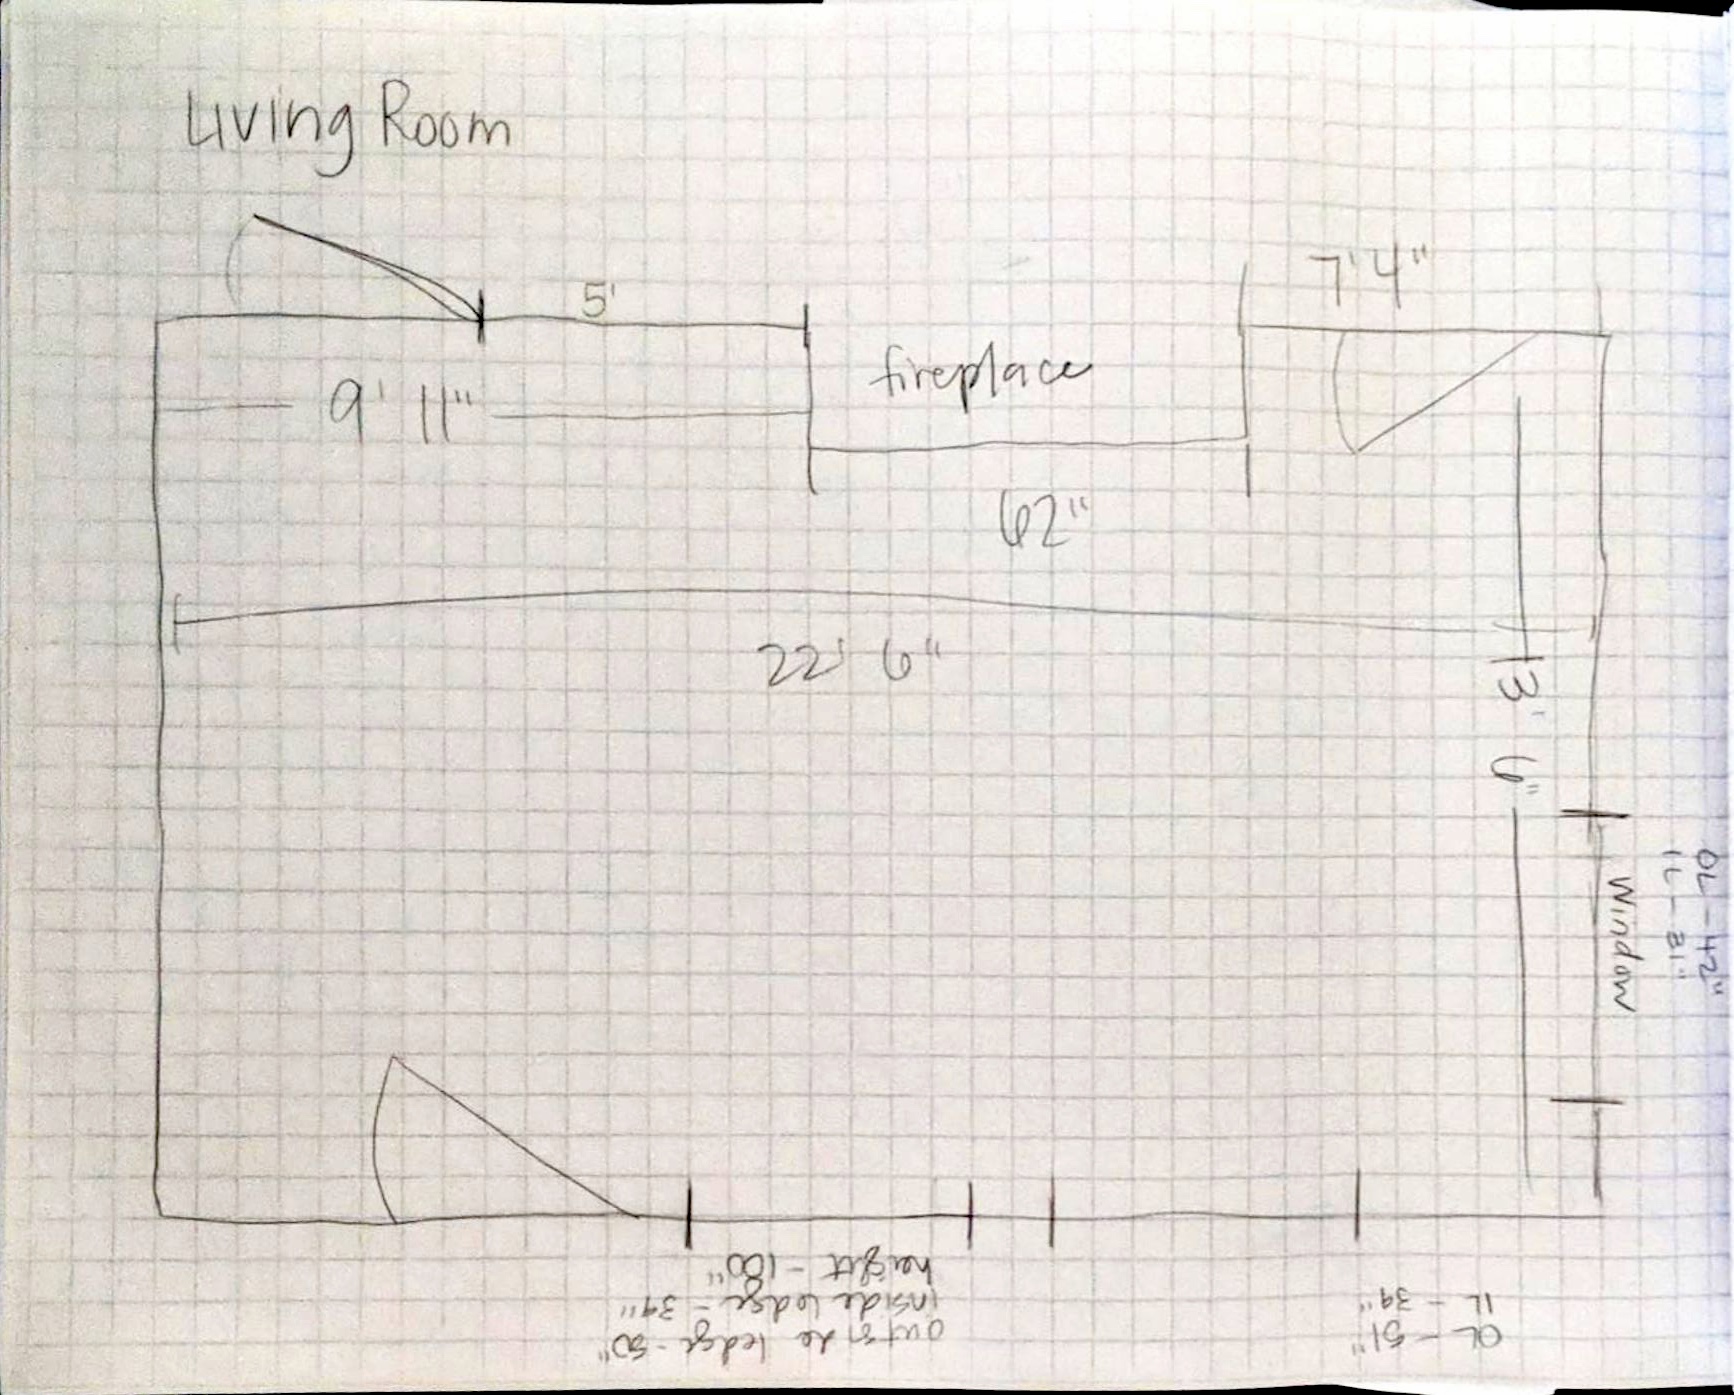 Living Room
5'
7'4"
fireplace
9' 11"
62"
22' 6"
13' 6"
Window
OL - 42"
IL - 31"
outside ledge - 50"
inside ledge - 39"
height - 100"
OL - 51"
IL - 39"